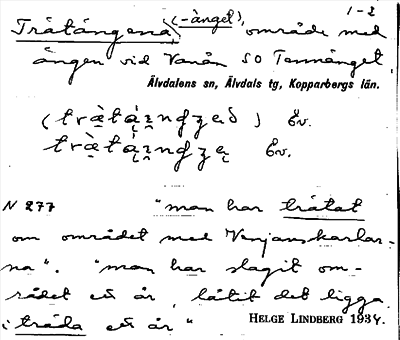 1-2
Tråtängena (-änget), område med
ängen vid Vanån SO Tennänget,
Älvdalens sn, Älvdals tg, Kopparbergs län.
Äv.
Äv.
N 277 "man har tråtat
om området med Venjanskarlar-
na". "man har slagit om-
rådet ett år, låtit det ligga
i träda ett år"
HELGE LINDBERG 1934.